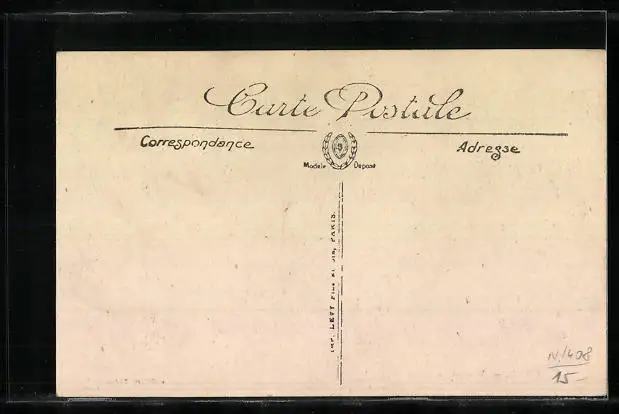 Carte Postale
Correspondance
Adresse
Modèle Déposé
IMP. LÉVY FILS ET CIE, PARIS.
N/408
15-